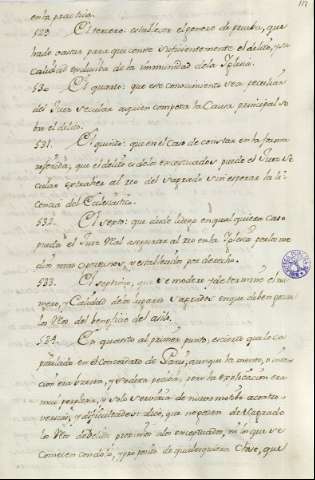 en la practica.
529. El tercero: establecer el genero de prueba, que
ha de bastar para que conste suficientemente el delito, y su
calidad excluiba de la immunidad de la Iglesia.
530. El quarto: que este conocimiento sea peculiar
del Juez secular aquien competa la Causa principal so
bre el delito.
531. El quinto: que en el Caso de constar en la forma
referida, que el delito es de los exceptuados puede el Juez se
cular extraher al reo del sagrado sin esperar la li
cencia del Ecclesiastico.
532. El sexto: que desde luego en qualquiera caso
pueda el Juez Real asegurar al reo en la Iglesia por los me
dios mas oportunos, y establecidos por derecho.
533. El septimo, que se modere y determine el nu
mero, y Calidad de los lugares sagrados en que deben gozar
los Reos del beneficio del asilo.
534. En quanto al primer punto, es cierto que lo ca
pitulado en el Concordato de
aunque la mente, o inten
cion era buena, y
pero la explicacion era
mui perplexa, y solo serviria de nuevo motivo a contro
versias, y dificultades: dice, que no gozen de Sagrado
los Reos de Delitos proximos a los exceptuados, ni los que se
cometen con dolo, y proposito de qualesquiera Clase, que